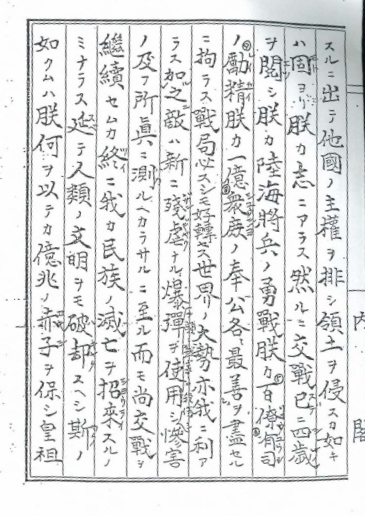 スルニ出テ他國ノ主權ヲ排シ領土ヲ侵スカ如キ
ハ固ヨリ朕カ志ニアラス然ルニ交戰已ニ四歳
ヲ閲シ朕カ陸海將兵ノ勇戰朕カ百僚有司
ノ勵精朕カ一億衆庶ノ奉公各〻最善ヲ盡セル
ニ拘ラス戰局必スシモ好轉セス世界ノ大勢亦我ニ利ア
ラス加之敵ハ新ニ殘虐ナル爆彈ヲ使用シ慘害
ノ及フ所眞ニ測ルヘカラサルニ至ル而モ尚交戰ヲ
繼續セムカ終ニ我カ民族ノ滅亡ヲ招來スルノ
ミナラス延テ人類ノ文明ヲモ破却スヘシ斯ノ
如クムハ朕何ヲ以テカ億兆ノ赤子ヲ保シ皇祖
内閣